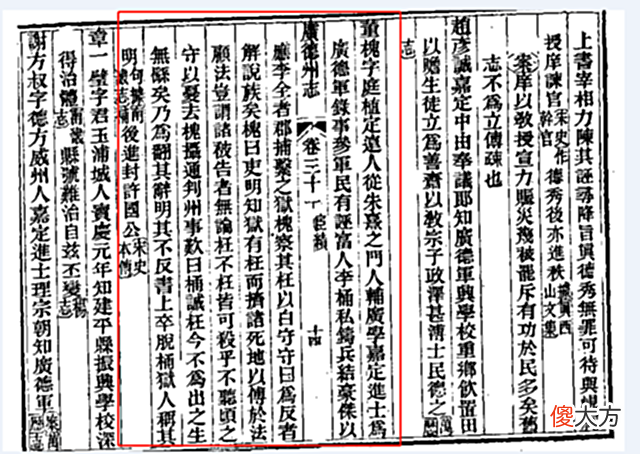 上書宰相力陳其誣尋降旨眞德秀無罪可待與祝
授庠諫官宋史作幹官德秀後亦進秩西山文集
案庠以敎授宣力賑災幾被罷斥有功於民多矣舊
志不爲立傳疎也
趙彥誠嘉定中由奉議郞知廣德軍興學校重鄉飲置田
以贍生徒立爲善齋以敎宗子政澤甚溥士民德之
志
董槐字庭植定遠人從朱熹之門人輔廣學嘉定進士爲
廣德軍錄事參軍民有誣富人李桶私鑄兵結豪俠以
廣德州志 卷三十一 宦績 十四
應李全者郡捕繫之獄槐察其枉以白守守曰爲反者
解說族矣槐曰吏明知獄有枉而擠諸死地以傅於法
顧法豈謂諸被告者無論枉不枉皆可殺乎不聽頃之
守以憂去槐攝通判州事歎曰桶誠枉今不爲出之生
無穌矣乃爲翻其辭明其不反書上卒脫桶獄人稱其
明句據南畿志補後進封許國公宋史本傳
章一璧字君玉浦城人寶慶元年知建平縣振興學校深
得治體南畿志縣號難治自茲丕變楊志
謝方叔字德方威州人嘉定進士理宗朝知廣德軍案萬曆志
傻大方